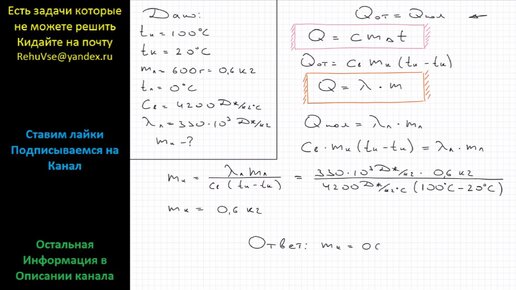 Есть задачи которые
не можете решить
Кидайте на почту
RehuVse@yandex.ru
Ставим лайки
Подписываемся на
Канал
Остальная
Информация в
Описании канала
Дано:
tк = 100°C
tк = 20°C
mл = 600г = 0,6 кг
tл = 0°C
Cв = 4200 Дж/кг°C
λл = 330·10³ Дж/кг
mк - ?
Qот = Qпол
Q = cmΔt
Qот = Cв mк (tк - tк)
Q = λ · m
Qпол = λл · mл
Cв · mк (tк - tк) = λл · mл
mк = λл mл / Cв (tк - tк) = 330·10³ Дж/кг · 0,6 кг / 4200 Дж/кг°C (100°C - 20°C)
mк = 0,6 кг
Ответ: mк = 0С